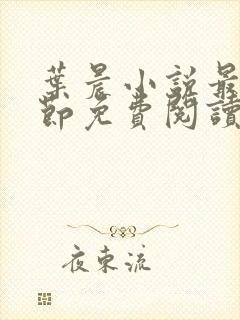 葉晨小說最
節免費閱讀
夜東流